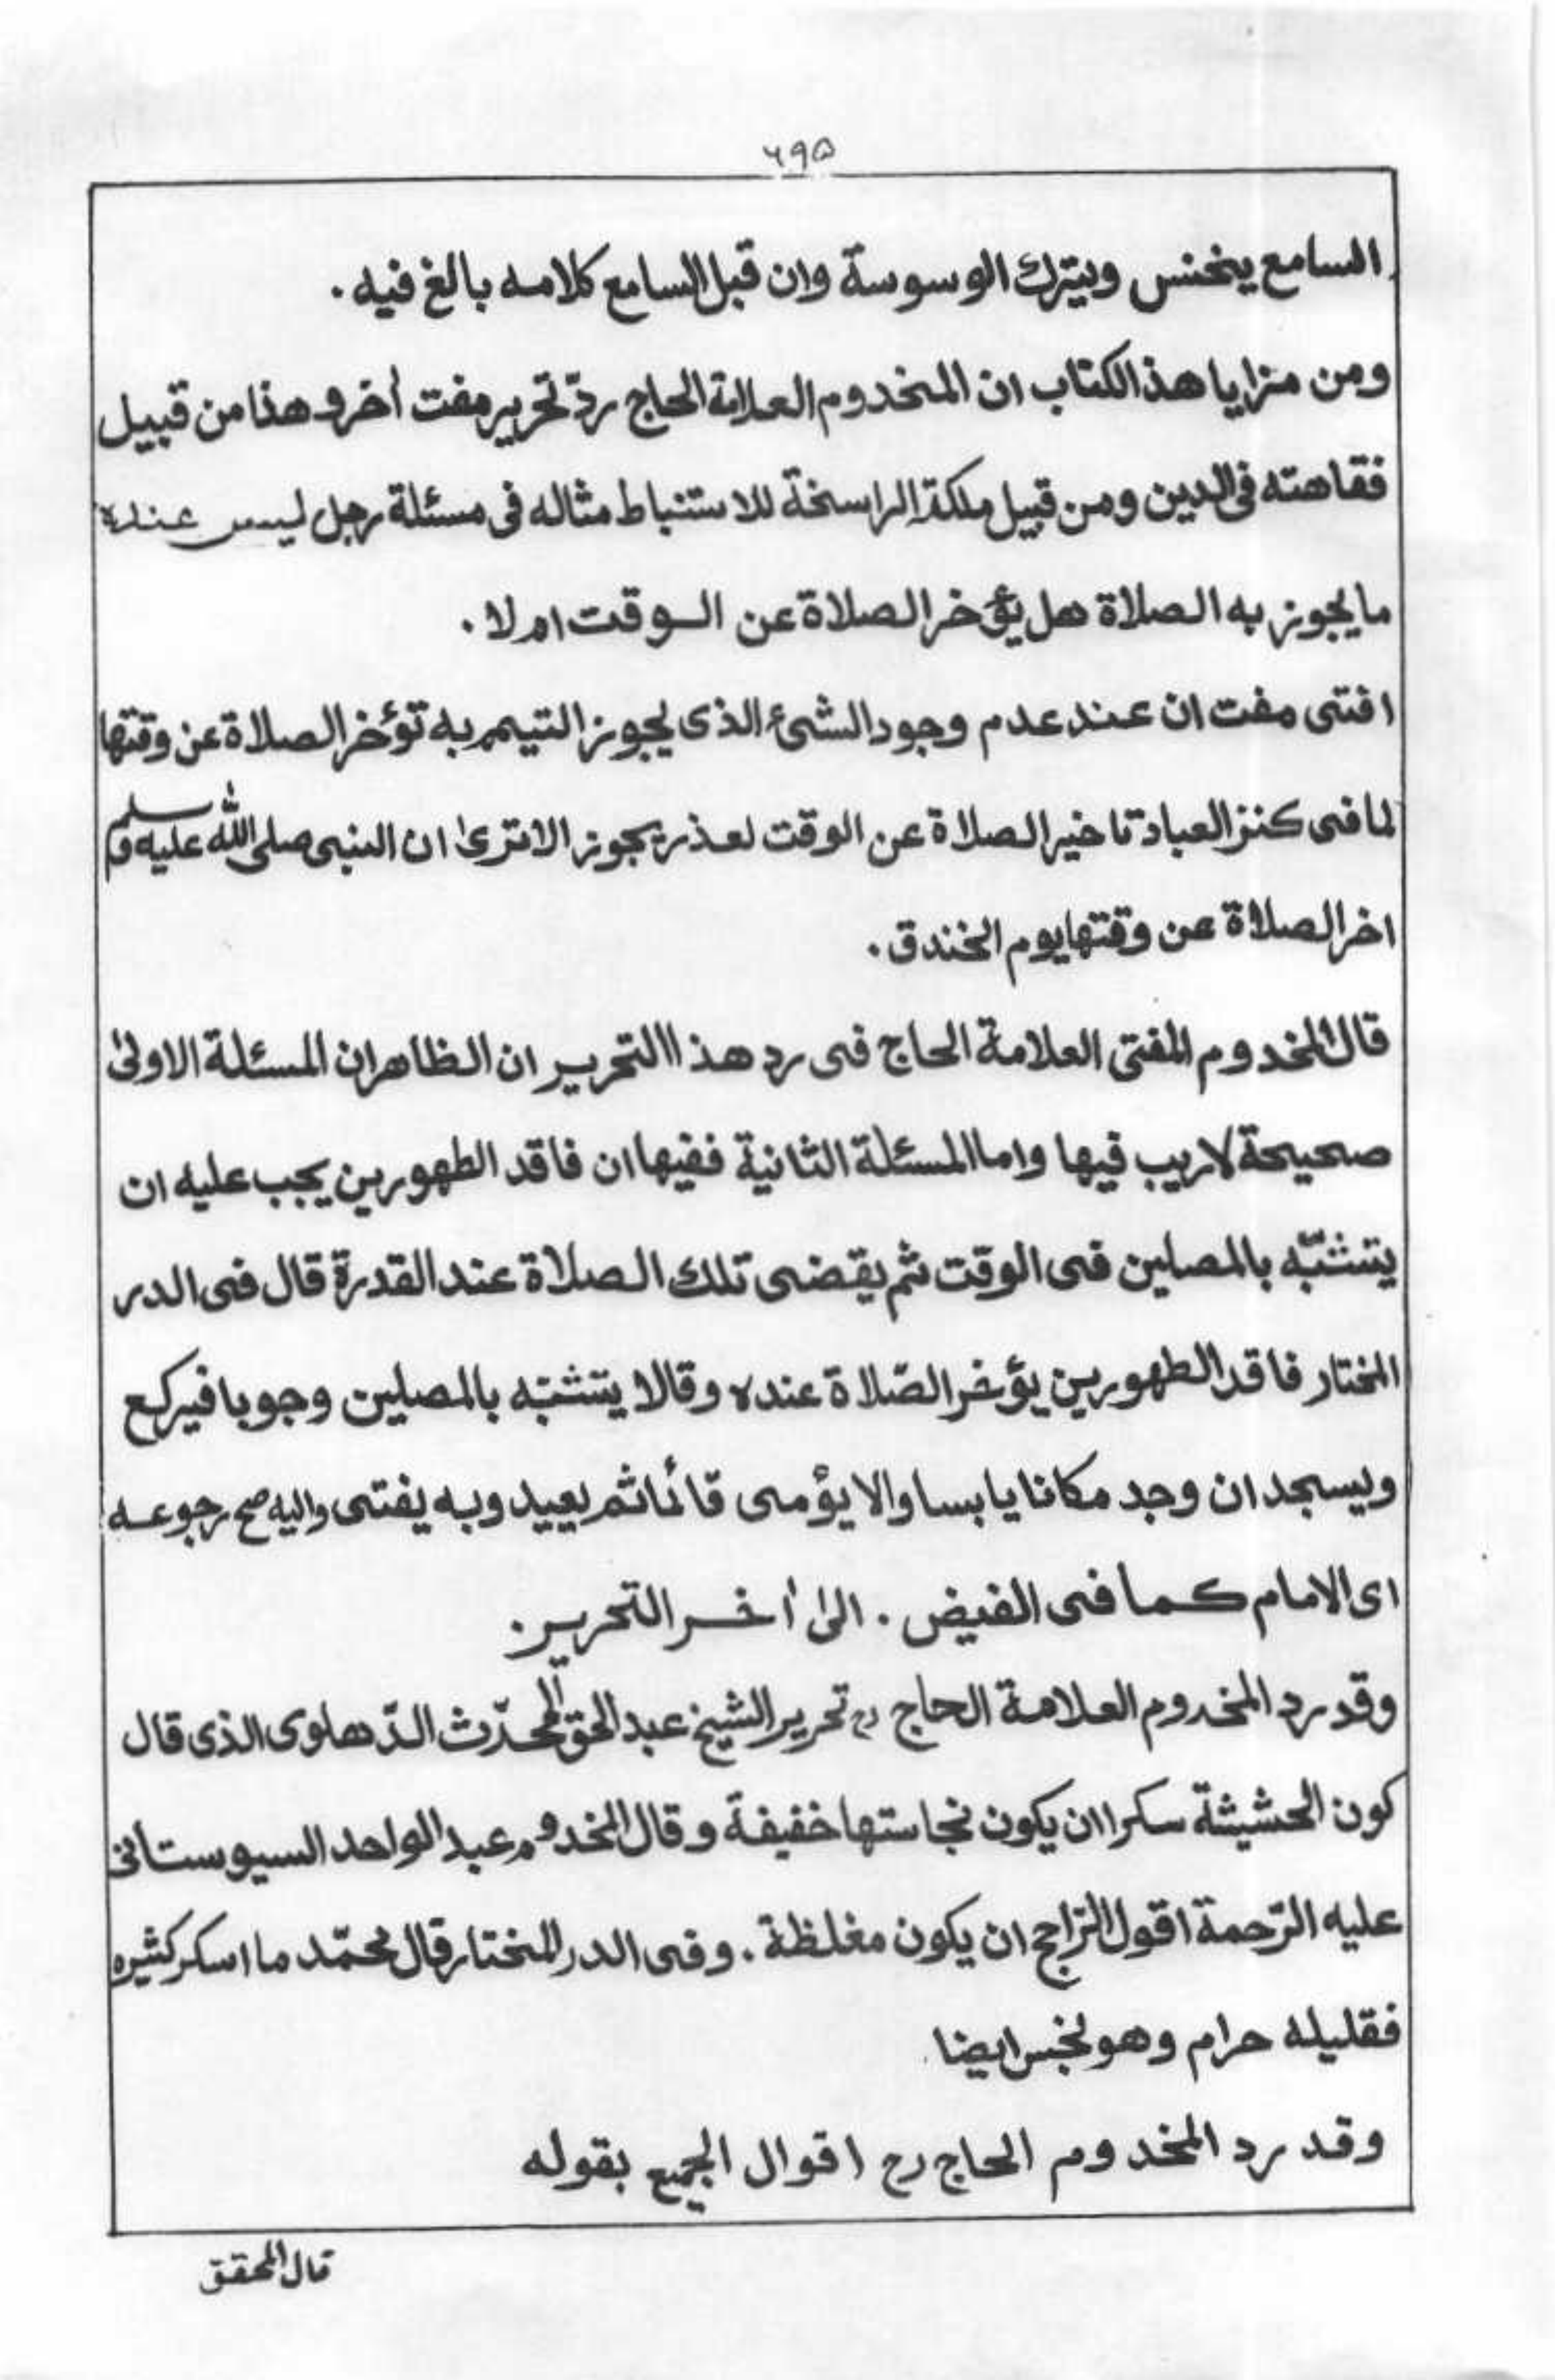 ۶۹۵
السامع ينخنس ويترك الوسوسة وان قبل السامع كلامه بالغ فيه .
ومن مزايا هذ الكتاب ان المخدوم العلامة الحاج ردّ تحرير مفت أخر و هذا من قبيل
فقاهته فى الدين ومن قبيل ملكة الراسخة للاستنباط مثاله فى مسئلة رجل ليس عنده
ما يجوز به الصلاة هل يؤخر الصلاة عن الوقت ام لا .
افتى مفت ان عند عدم وجود الشئ الذى يجوز التيمم به تؤخر الصلاة عن وقتها
لما فى كنز العباد تاخير الصلاة عن الوقت لعذر يجوز الا ترىٰ ان النبى صلى الله عليه وسلم
اخر الصلاة عن وقتها يوم الخندق .
قال المخدوم المفتى العلامة الحاج فى رد هذا التحرير ان الظاهر ان المسئلة الاولىٰ
صحيحة لا ريب فيها واما المسئلة الثانية ففيها ان فاقد الطهورين يجب عليه ان
يتشبّه بالمصلين فى الوقت ثم يقضى تلك الصلاة عند القدرة قال فى الدر
المختار فاقد الطهورين يؤخر الصّلاة عنده وقالا يتشبّه بالمصلين وجوبا فيركع
ويسجد ان وجد مكانا يابسا والا يؤمى قائما ثم يعيد وبه يفتى واليه صح رجوعه
اى الامام كما فى الفيض . الىٰ أخر التحرير .
وقد رد المخدوم العلامة الحاج رح تحرير الشيخ عبد الحق المحدّث الدّهلوى الذى قال
كون الحشيشة سكرا ان يكون نجاستها خفيفة وقال المخدوم عبد الواحد السيوستانى
عليه الرّحمة اقول الرّاجح ان يكون مغلظة . وفى الدر المختار قال محمّد ما اسكر كثيره
فقليله حرام وهو نجس ايضا .
وقد رد المخدوم الحاج رح اقوال الجميع بقوله
قال المحقق